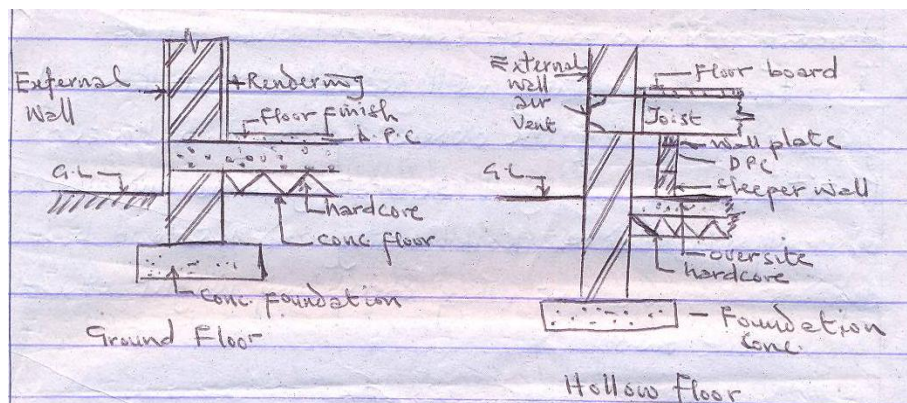 External
Wall
Rendering
Floor Finish
D.P.C
G.L
hardcore
conc floor
conc foundation
Ground Floor
External
wall
air
vent
Floor board
Joist
wall plate
DPC
sleeper wall
G.L
oversite
hardcore
Foundation
conc.
Hollow Floor